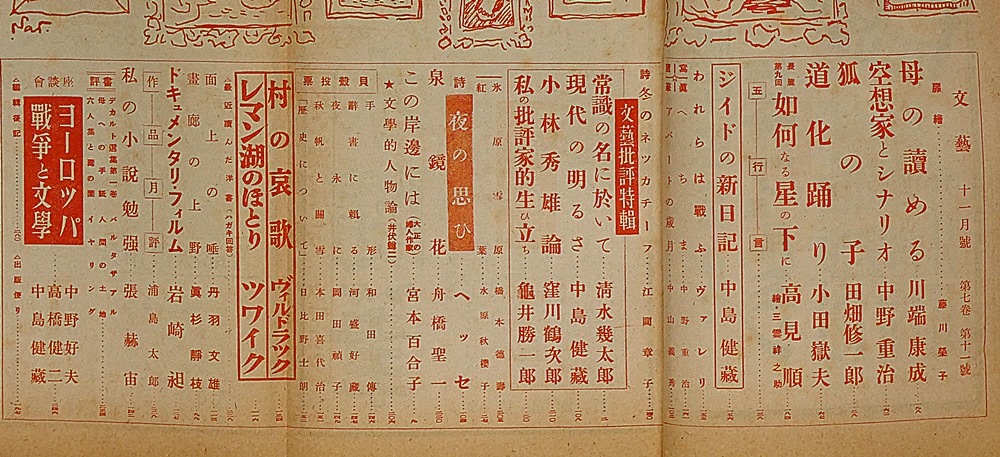 文藝 十一月號 第七卷 第十一號
扉繪 藤川榮子
母の讀める 川端康成
空想家とシナリオ 中野重治
狐の子 田畑修一郎
道化踊り 小田嶽夫
長篇 第九回 如何なる星の下に 高見順
繪 三雲祥之助
五行言
ジイドの新日記 中島健藏
われらは戰ふ ヴァレリ
詩 冬のネッカチーフ 江間章子
文藝批評特輯
常識の名に於いて 清水幾太郎
現代の明るさ 中島健藏
小林秀雄論 窪川鶴次郎
私の批評家的生ひ立ち 龜井勝一郎
氷原 橋本德壽
紅葉 水原秋櫻子
詩 夜の思ひ ヘッセ
泉鏡花 舟橋聖一
この岸邊には(大正の婦人作家) 宮本百合子
★文學的人物論(井伏鱒二)
貝殼投票
手形 和田傳
辭書に賴る 河盛好藏
夜永に 岡田禎子
秋帆と關雪 本田喜代治
「歷史について」 日比野士朗
村の哀歌 ヴィルドラック
レマン湖のほとり ツワイク
△最近讀んだ洋書(ハガキ回答)
面上の唾 丹羽文雄
畫廊の上野 眞杉靜枝
ドキュメンタリ・フィルム 岩崎昶
作品月評 浦島太郎
私の小說勉强 張赫宙
書評
デカルト選集第一卷 バルタザアル
母への手記 人間の土地
六人集と毒の園 イヤリング
座談會
ヨーロッパ戰爭と文學
中野好夫
高橋健二
中島健藏
△編輯後記
△出版便り